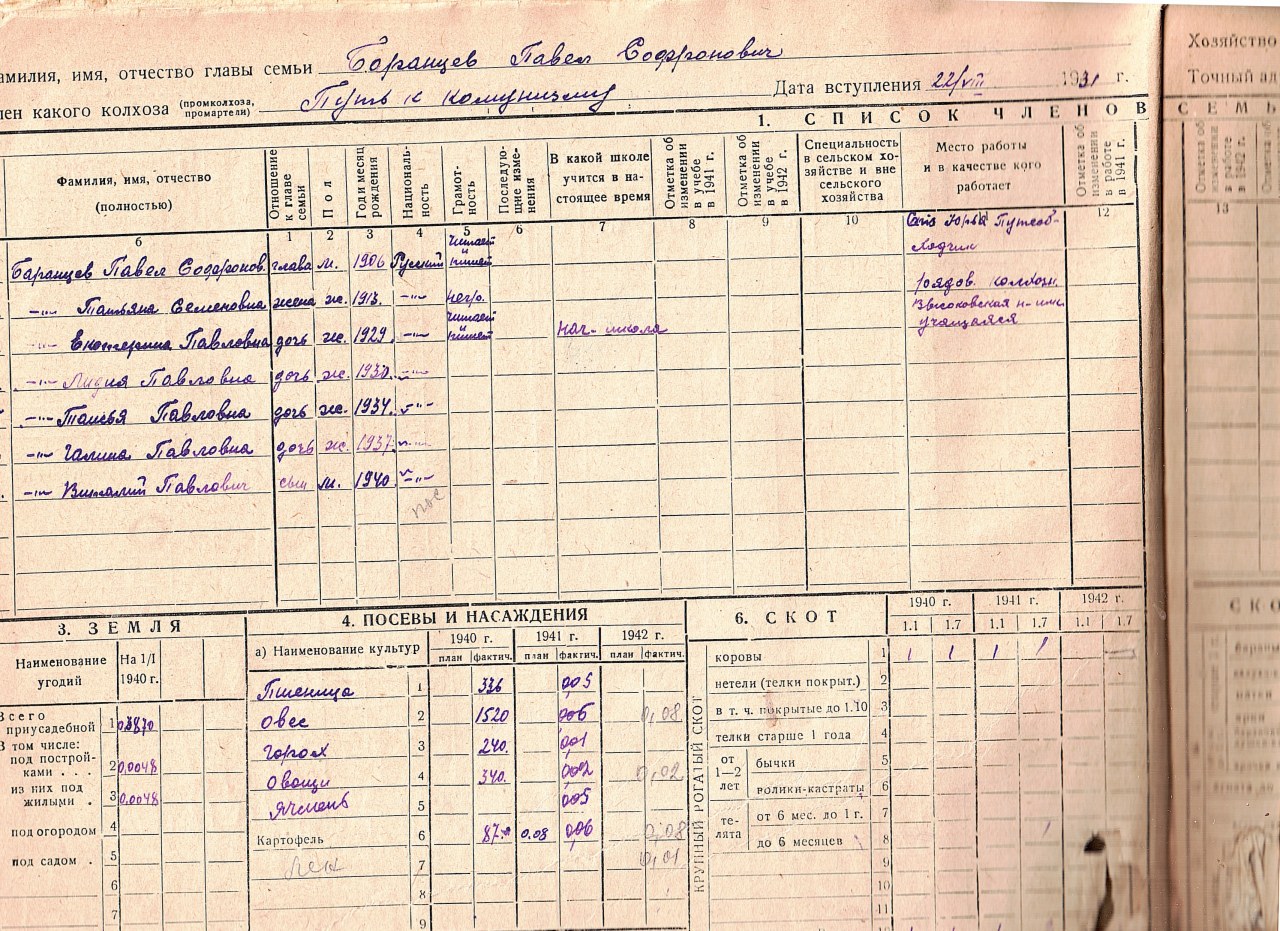 амилия, имя, отчество главы семьи Баранцев Павел Софронович
лен какого колхоза (промколхоза, промартели) Путь к комунизму Дата вступления 22/VIII 1931 г.
1. СПИСОК ЧЛЕНОВ
Фамилия, имя, отчество (полностью)
Отношение к главе семьи
Пол
Год и месяц рождения
Националь-ность
Грамот-ность
Последую-щие изме-нения
В какой школе учится в на-стоящее время
Отметка об изменении в учебе в 1941 г.
Отметка об изменении в учебе в 1942 г.
Специальность в сельском хо-зяйстве и вне сельского хозяйства
Место работы и в качестве кого работает
Отметка об изменении в работе в 1941 г.
б 1 2 3 4 5 6 7 8 9 10 12
Баранцев Павел Софронов. глава м. 1906 Русский читает и пишет
жена ж. 1913. -"- негр. рядов. колхозн.
-"- Екатерина Павловна дочь ж. 1929. -"- читает и пишет нач- школа учащаяся
-"- Лидия Павловна дочь ж. 1930. -"-
-"- Павловна дочь ж. 1934. -"-
-"- Галина Павловна дочь ж. 1937. -"-
-"- Виталий Павлович сын м. 1940 -"-
3. ЗЕМЛЯ
Наименование угодий На 1/I 1940 г.
Всего приусадебной 1
В том числе:
под построй-ками . . . 2 0,0048
из них под жилыми . 3 0,0048
под огородом 4
под садом . 5
6
7
4. ПОСЕВЫ И НАСАЖДЕНИЯ
а) Наименование культур 1940 г. 1941 г. 1942 г.
план фактич. план фактич. план фактич.
Пшеница 1 336 005
Овес 2 1520 006 0,08
горох 3 240. 001
Овощи 4 340. 002 0,02
Ячмень 5 005
Картофель 6 87. 0.08 006 0,08
Лен 7 0,01
8
9
6. СКОТ
1940 г. 1941 г. 1942 г.
1.1 1.7 1.1 1.7 1.1 1.7
КРУПНЫЙ РОГАТЫЙ СКОТ
коровы 1 1 1 1 1
нетели (телки покрыт.) 2
в т. ч. покрытые до 1.10 3
телки старше 1 года 4
от 1—2 лет бычки 5
волики-кастраты 6
те-лята от 6 мес. до 1 г. 7
до 6 месяцев 8
9
10
11
Хозяйство
Точный ад
СЕМЬ
Отметка об изменении в работе в 1942 г.
13
СКО